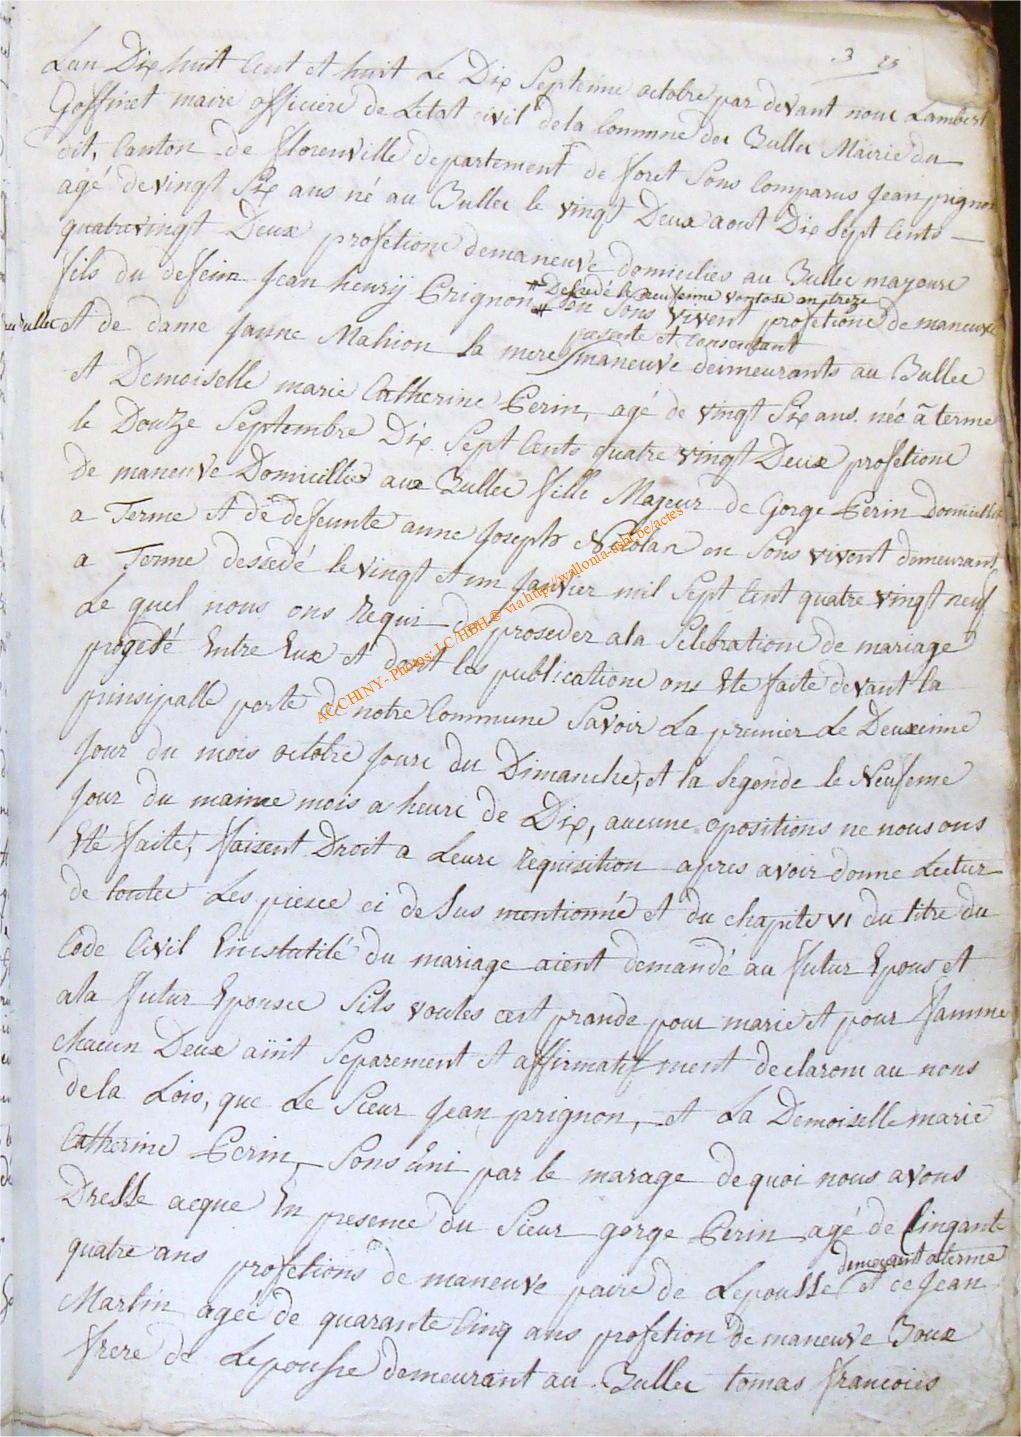 3 23
Lan Dix huit Cent et huit Le Dix Septeime octobre par devant nous Lambert
Goffinet maire officiere de Letat civil de la Commne des Bulles Mairie du
dit, Canton de florenville departement de foret Sons Comparus Jean prignon
agé de vingt Six ans né au Bulles le vingt Deux aout Dix Sept Cents
quatrevingt Deux profetione demaneuve domicilies au Bulles mayeure
fils du defein Jean henrÿ Prignon en Sons vivent profetione de maneuve
Dessedé le neufeime vontose an treze
au Bulles et de dame Janne Mahion la mere maneuve deimeurants au Bulles
presente et Consentant
et Demoiselle marie Catherine Perin, agé de vingt Six ans. néé à terme
le Douze Septembre Dix Sept Cents quatre vingt Deux profetione
de maneuve Domicillies aux Bulles fille Majeur de Gorge Perin Domicillié
a Terme et de defeunte anne Joseph Nicolan en Sons vivent demeurant
a Terme dessedé le vingt et un Janvier mil Sept Cent quatre vingt neuf
Le quel nous ons Requi de proseder a la Selebratione de mariage
progeté Entre Eux et dont les publicatione ons Eté faite devant la
principalle porte de notre Commune Savoir La premier Le Deuxeime
Jour du mois octobre Joure du Dimanche, et la Segonde le Neufeme
Jour du maime mois a heure de Dix, aucune opositions ne nous ons
Eté faite, faisent Droit a Leure Requisition apres avoir donne Lectur
de toutes Les piesce ci deSus mentionné et du chapite VI du titre du
Code Civil Enstutilé du mariage aient demandé au futur Epous et
a la futur Epousée Sils voules cest prande pour marie et pour famme
chacun Deux aiint Separement et affirmatifment declarons au nons
de la Lois, que Le Sieur Jean prignon, et La Demoiselle marie
Catherine Perin, Sons Uni par le marage de quoi nous avons
Dresse acque En presence du Sieur gorge Perin agé de Cinqante
quatre ans profetions de maneuve paire de Lepousse et ce Jean
demeurant a terme
Martin ageé de quarante Cinq ans profetion de maneuve Boux
frere de Lepousse demeurant au Bulles tomas francois
ACCHINY - Photos: LC/HBH © via http://wallonia-asbl.be/actes